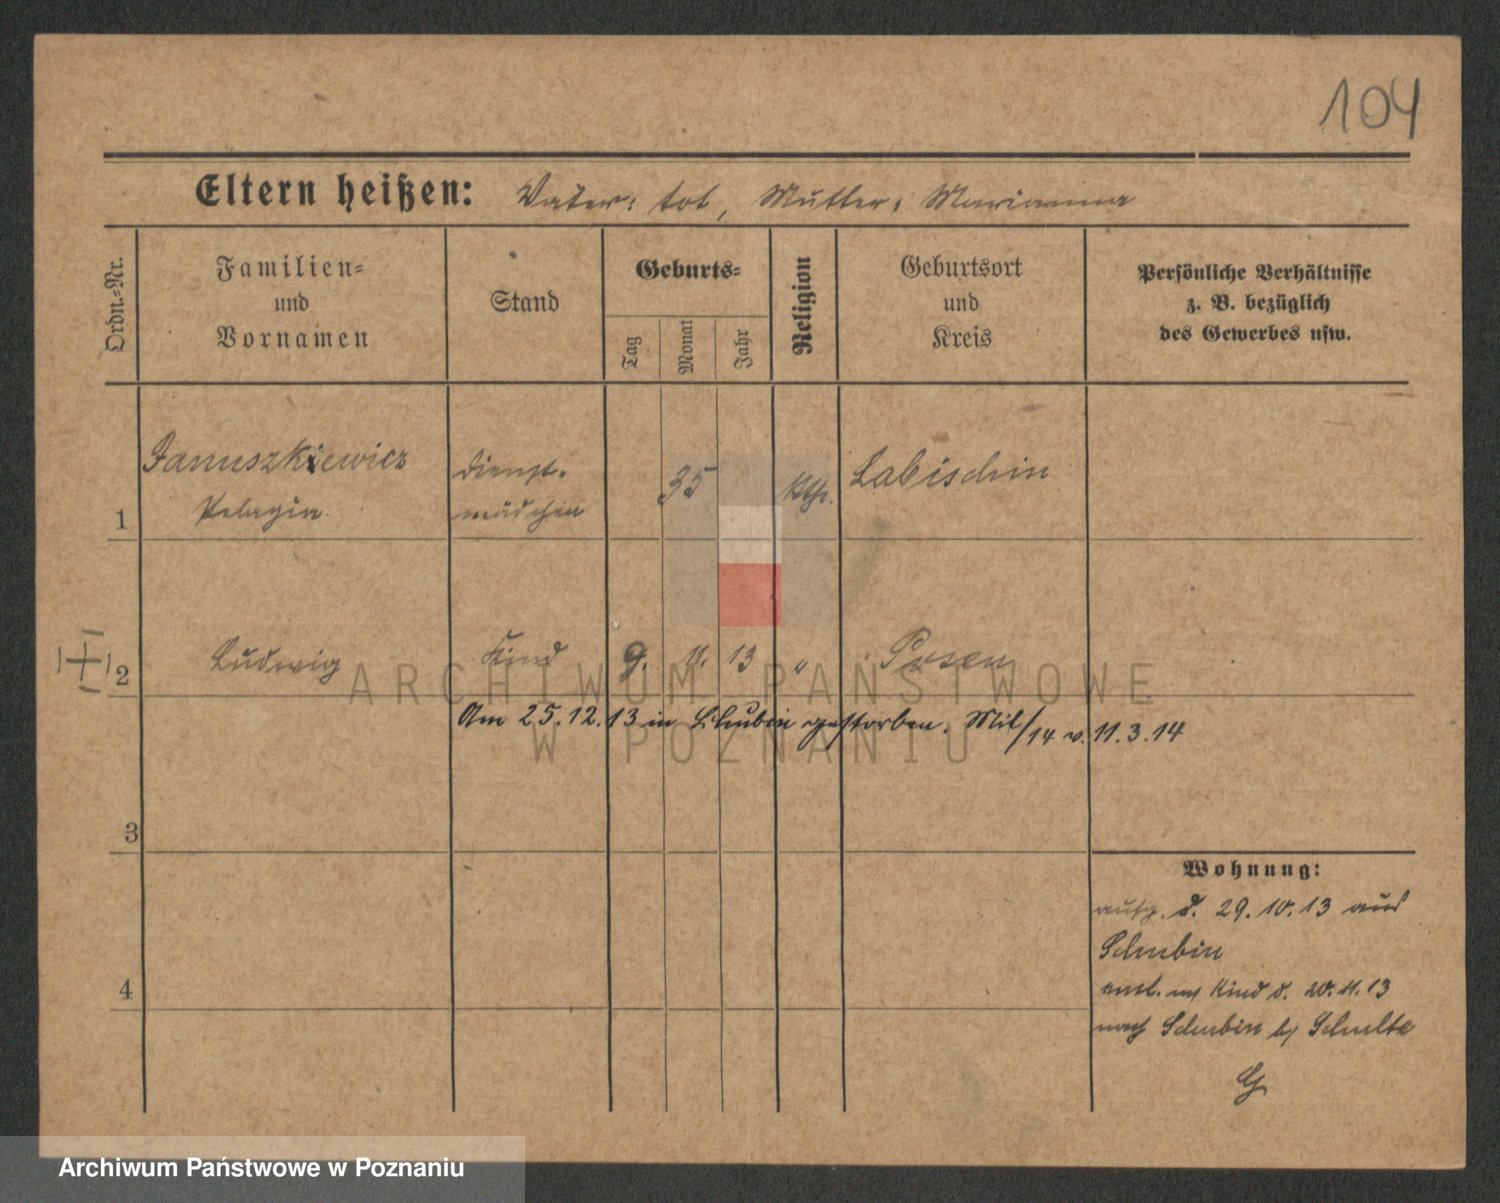 104
Eltern heißen: Vater: tot, Mutter: Marianna
Ordn.-Nr.
Familien-
und
Vornamen
Stand
Geburts-
Tag
Monat
Jahr
Religion
Geburtsort
und
Kreis
Persönliche Verhältnisse
z. B. bezüglich
des Gewerbes usw.
1 Januszkiewicz
Pelagia
Dienst-
mädchen
35
kth.
Labischin
2 Ludwig Kind 9. 11. 13 " Posen
Am 25.12.13 in Schubin gestorben. Mit/14 v. 11.3.14
3
4
Wohnung:
aufg. d. 29.10.13 aus
Schubin
entl. m/ Kind d. 20.11.13
nach Schubin b/ Schulte
G
ARCHIWUM PAŃSTWOWE
W POZNANIU
Archiwum Państwowe w Poznaniu